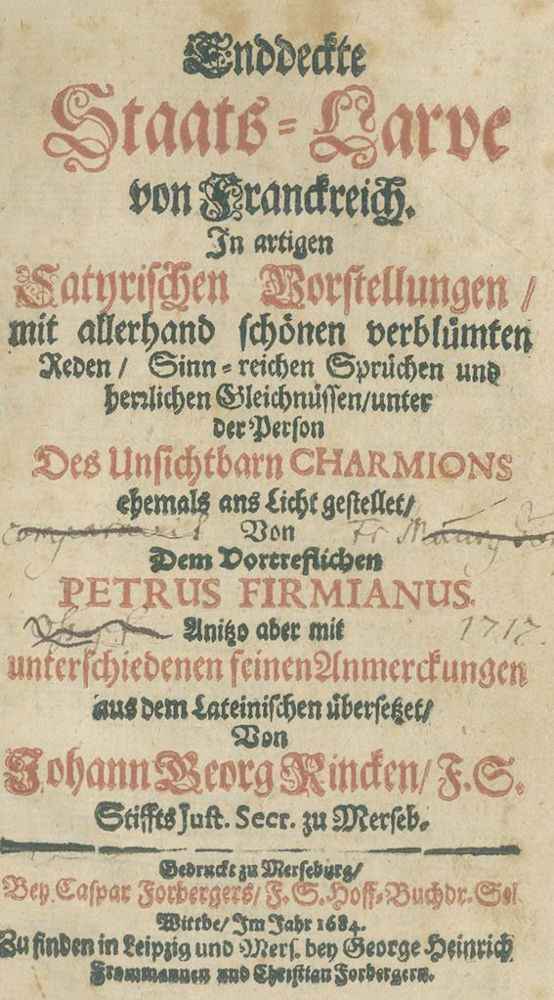 Enddeckte
Staats-Larve
von Franckreich.
In artigen
Satyrischen Vorstellungen /
mit allerhand schönen verblümten
Reden / Sinn-reichen Sprüchen und
herrlichen Gleichnüssen/unter
der Person
Des Unsichtbarn CHARMIONS
ehemals ans Licht gestellet/
Von
Dem Vortreflichen
PETRUS FIRMIANUS.
Anitzo aber mit
1717.
unterschiedenen feinen Anmerckungen
aus dem Lateinischen übersetzet/
Von
Johann Georg Rincken/ F.S.
Stiffts Just. Secr. zu Merseb.
Gedruckt zu Merseburg/
Bey Caspar Forbergers/ F.S. Hoff-Buchdr. Sel.
Wittbe/ Im Jahr 1684.
Zu finden in Leipzig und Mers. bey George Heinrich
Frommannen und Christian Forbergern.